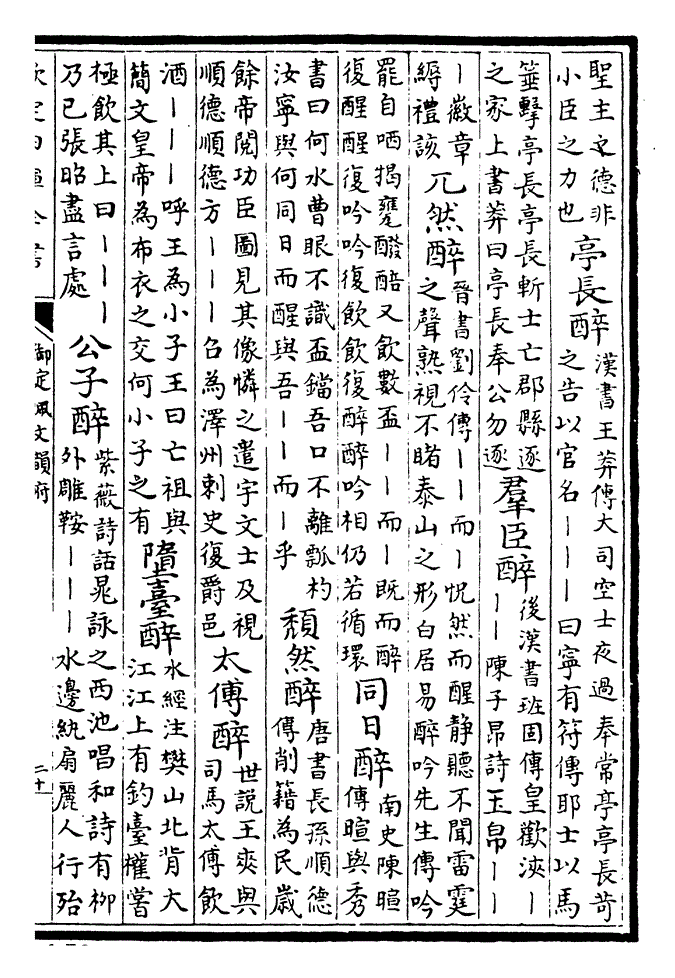 聖主之德非
小臣之力也
亭長醉
漢書王莽傳大司空士夜過奉常亭亭長苛
之告以官名｜｜｜曰寧有符傳耶士以馬
箠擊亭長亭長斬士亡郡縣逐
之家上書莽曰亭長奉公勿逐
羣臣醉
後漢書班固傳皇歡浹｜
｜｜陳子昂詩玉帛｜｜
｜徽章
縟禮該
兀然醉
晉書劉伶傳｜｜而｜怳然而醒静聽不聞雷霆
之聲熟視不睹泰山之形白居易醉吟先生傳吟
罷自哂揭甕醱醅又飲數盃｜｜而｜既而醉
復醒醒復吟吟復飲飲復醉醉吟相仍若循環
同日醉
南史陳暄
傳暄與秀
書曰何水曹眼不識盃鐺吾口不離瓢杓
汝寧與何同日而醒與吾｜｜而｜乎
頹然醉
唐書長孫順德
傳削籍為民歲
餘帝閱功臣圖見其像憐之遣宇文士及視
順德順德方｜｜｜召為澤州刺史復爵邑
太傅醉
世說王爽與
司馬太傅飲
酒｜｜｜呼王為小子王曰亡祖與
簡文皇帝為布衣之交何小子之有
墮臺醉
水經注樊山北背大
江江上有釣臺權嘗
極飲其上曰｜｜｜
乃已張昭盡言處
公子醉
紫薇詩話晁詠之西池唱和詩有柳
外雕鞍｜｜｜水邊紈扇麗人行殆
欽定四庫全書
御定佩文韻府
二十